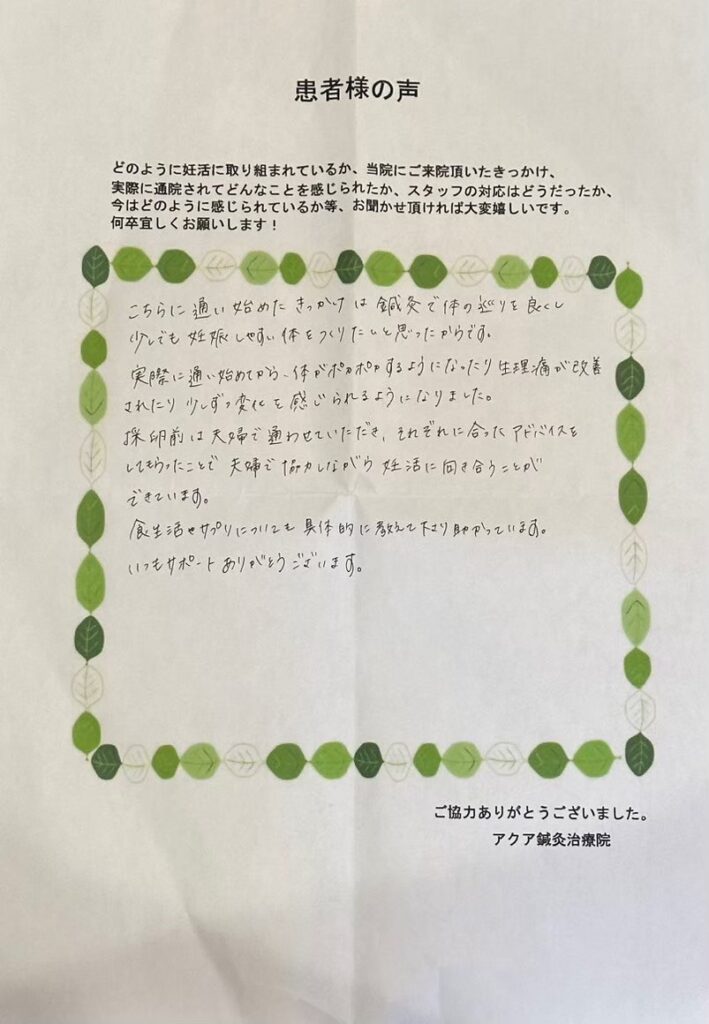 患者様の声
どのように妊活に取り組まれているか、当院にご来院頂いたきっかけ、
実際に通院されてどんなことを感じられたか、スタッフの対応はどうだったか、
今はどのように感じられているか等、お聞かせ頂ければ大変嬉しいです。
何卒宜しくお願いします！
こちらに通い始めたきっかけは鍼灸で体の巡りを良くし
少しでも妊娠しやすい体をつくりたいと思ったからです。
実際に通い始めてから、体がポカポカするようになったり生理痛が改善
されたり少しずつ変化を感じられるようになりました。
採卵前は夫婦で通わせていただき、それぞれに合ったアドバイスを
してもらったことで夫婦で協力しながら妊活に向き合うことが
できています。
食生活やサプリについても具体的に教えて下さり助かっています。
いつもサポートありがとうございます。
ご協力ありがとうございました。
アクア鍼灸治療院